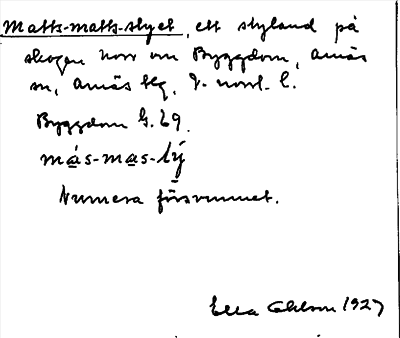 Matts-matts-slyet, ett slyland på
skogen norr om Byggdom, Amäs
sn, Amäs
Byggdom G. 29.
más-mas-lý
Numera försvunnet.
Ella Ohlson 1927